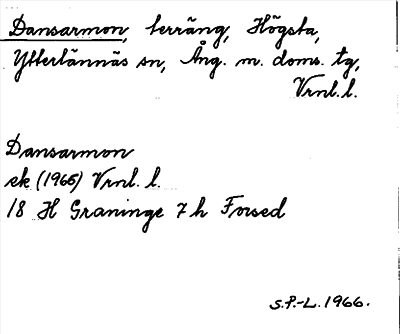 Dansarmon, terräng, Högsta,
Ytterlännäs sn, Ång. m. doms. tg,
Vrnl. l.
Dansarmon
ek (1965) Vrnl. l.
18 H Graninge 7 h Forsed
S.P.-L. 1966.